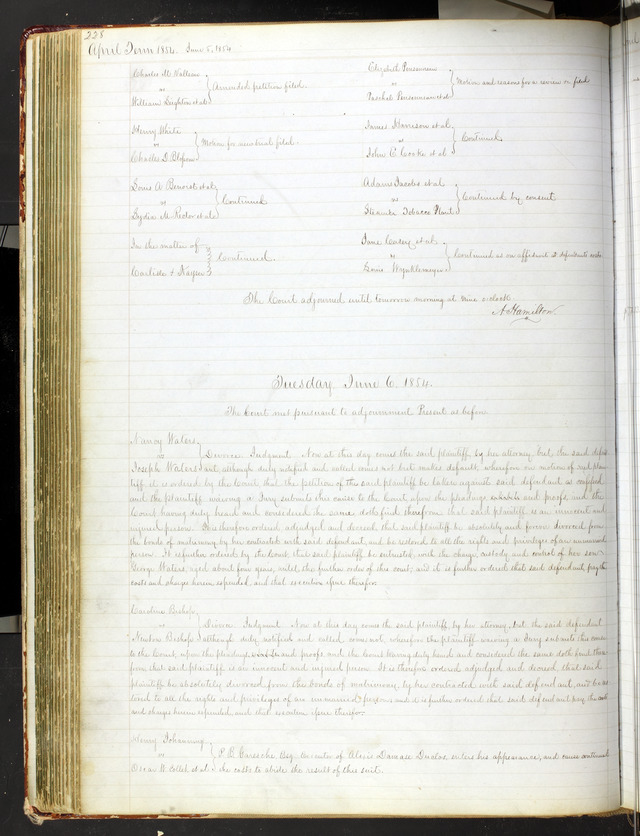 228
April Term 1854. June 5, 1854.
Charles M. Valleau
vs
William Leighton et al
Amended petition filed.
Elizabeth Pensenneau
vs
Paschal Pensenneau et al
Motion and reasons for a review on filed
Henry White
vs
Charles D. Blossom
Motion for new trial filed.
James Harrison et al
vs
John C. Cooke et al
Continued
Louis A. Benoist et al
vs
Lydia M. Rector et al
Continued
Adam Jacobs et al
vs
Steamer Tobacco Plant
Continued by consent
In the matter of
Carlisle & Kayser
Continued.
Jane Casey et al
vs
Louis
Continued as on affidavit & defendants costs
The Court adjourned until tomorrow morning at nine o'clock
A. Hamilton
Tuesday June 6, 1854.
The Court met pursuant to adjournment Present as before
Nancy Waters
vs
Divorce Judgment Now at this day comes the said plaintiff, by her attorney, but the said defend
Joseph Waters ant, although duly notified and called comes not but makes default, wherefore on motion of said plain
tiff, it is ordered by the Court, that the petition of the said plaintiff be taken against said defendant as confessed
and the plaintiff waiving a Jury submits this cause to the Court, upon the pleadings and proofs, and the
Court having duly heard and considered the same doth find therefrom that said plaintiff is an innocent and
injured person. It is therefore ordered adjudged and decreed that said plaintiff be absolutely and forever divorced from
the bonds of matrimony, by her contracted with said defendant, and be restored to all the rights and privileges of an unmarried
person. It is further ordered by the Court, that said plaintiff be entrusted with the charge, custody and control of her son
George Waters, aged about four years, until the further order of this court; and it is further ordered that said defendant pay the
costs and charges herein expended, and that execution issue therefor.
Caroline Bishop
vs
Divorce Judgment Now at this day comes the said plaintiff, by her attorney, but the said defendant
Newton Bishop although duly notified and called, comes not, wherefore the plaintiff waiving a Jury submits this cause
to the Court, upon the pleadings and proofs and the Court having duly heard and considered the same doth find there
from that said plaintiff is an innocent and injured person. It is therefore ordered adjudged and decreed that said
plaintiff be absolutely divorced from the bonds of matrimony, by her contracted with said defendant, and be res
tored to all the rights and privileges of an unmarried person, and it is further ordered that said defendant pay the costs
and charges herein expended, and that execution issue therefor.
Henry Johanning
vs
Oscar W. Collet et al
P. C. Caresche, Esq. executor of Alexis Damase Ducloz enters his appearance, and cause continued
the costs to abide the result of this suit.